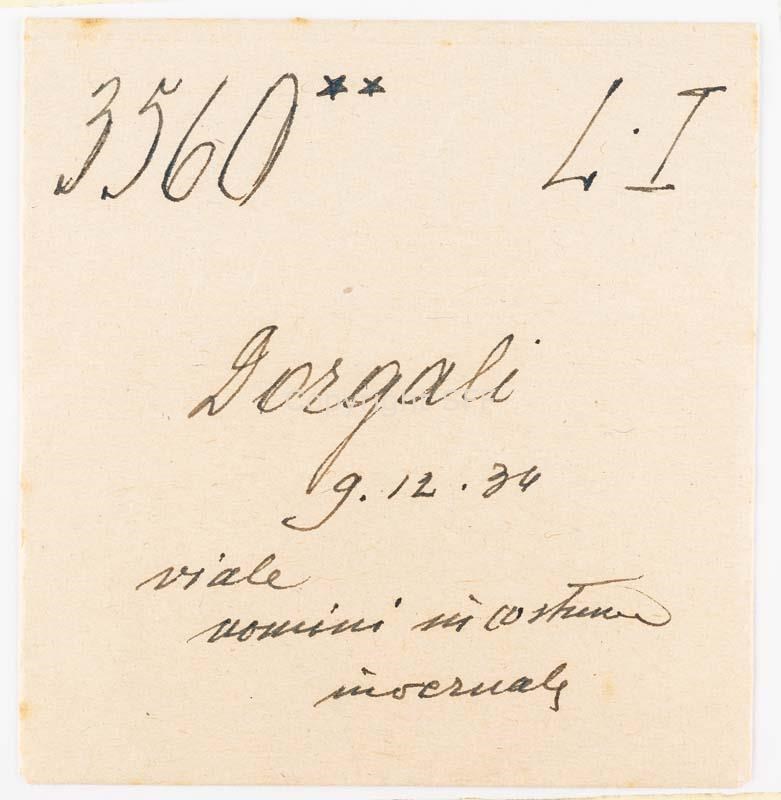 3560** L.I
Dorgali
9.12.34
viale
uomini in costume
invernale